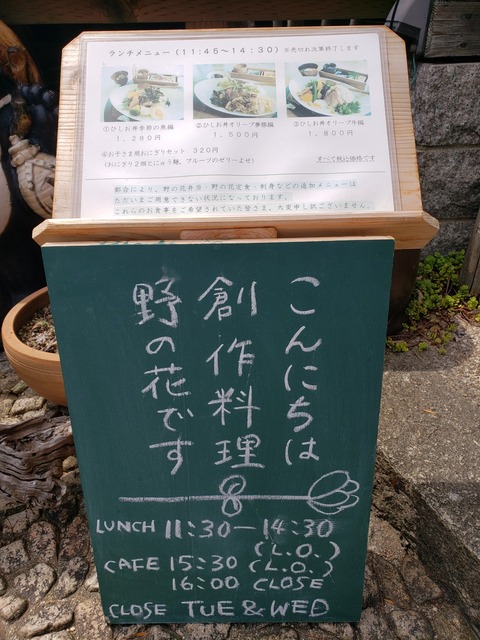 ランチメニュー(11:45〜14:30)※売切れ次第終了します
①ひしお丼季節の魚編
1,280円
②ひしお丼オリーブ夢豚編
1,500円
③ひしお丼オリーブ牛編
1,800円
④お子さま用おにぎりセット 320円
(おにぎり2個とにゅう麺、フルーツのゼリーよせ)
すべて税込価格です
都合により、野の花弁当・野の花定食・刺身などの追加メニューは
ただいまご用意できない状況になっております。
これらのお食事をご希望されていた皆さま、大変申し訳ございません。
こんにちは
創作料理
野の花です
LUNCH 11:30－14:30
(L.O.)
CAFE 15:30 (L.O.)
16:00 CLOSE
CLOSE TUE & WED